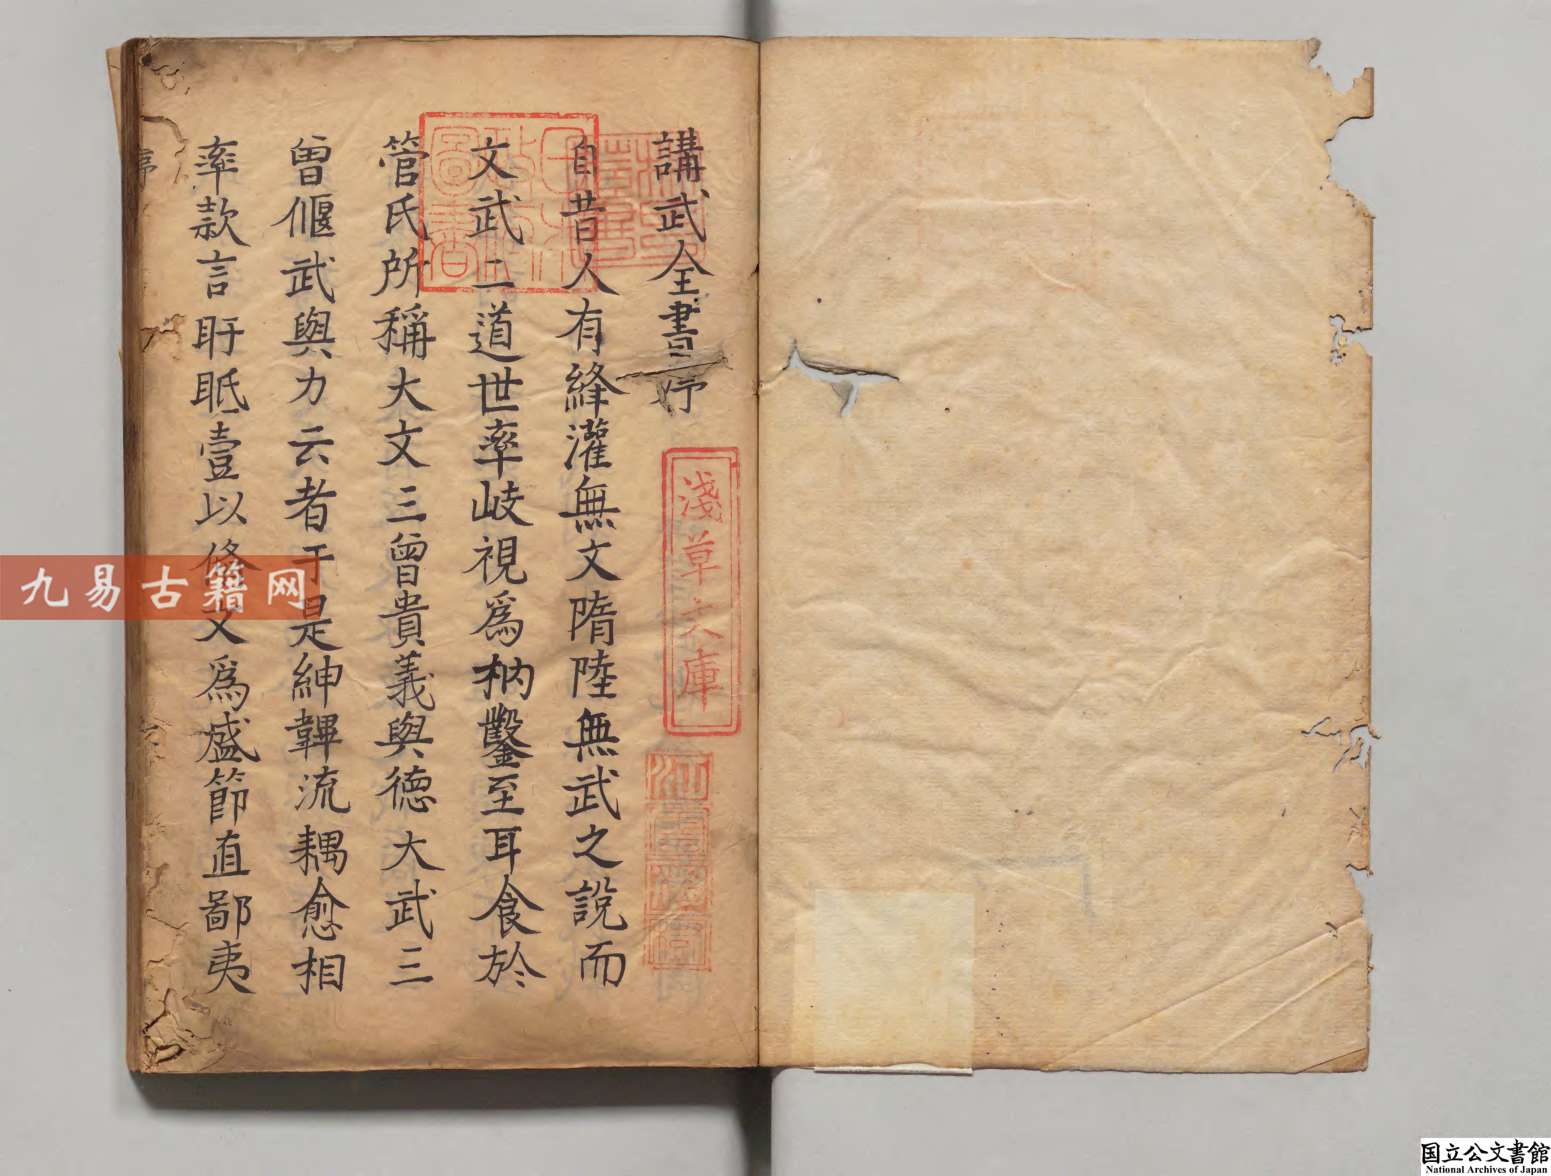 講武全書序
自昔人有絳灌無文隋陸無武之說而
文武二道世率岐視爲枘鑿至耳食於
管氏所稱大文三曾貴義與德大武三
曾偃武與力云者于是紳韠流耦愈相
率款言盱眡壹以修文爲盛節直鄙夷
淺草文庫
日本政府圖書
九易古籍网
国立公文書館
National Archives of Japan